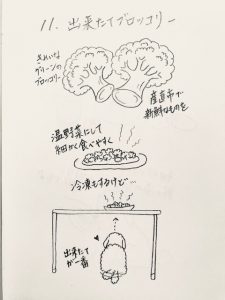 11. 出来たてブロッコリー
きれいな
グリーンの
ブロッコリー
産直市で
新鮮なものを
温野菜にして
細かく食べやすく
冷凍もするけど…
出来たて
が一番